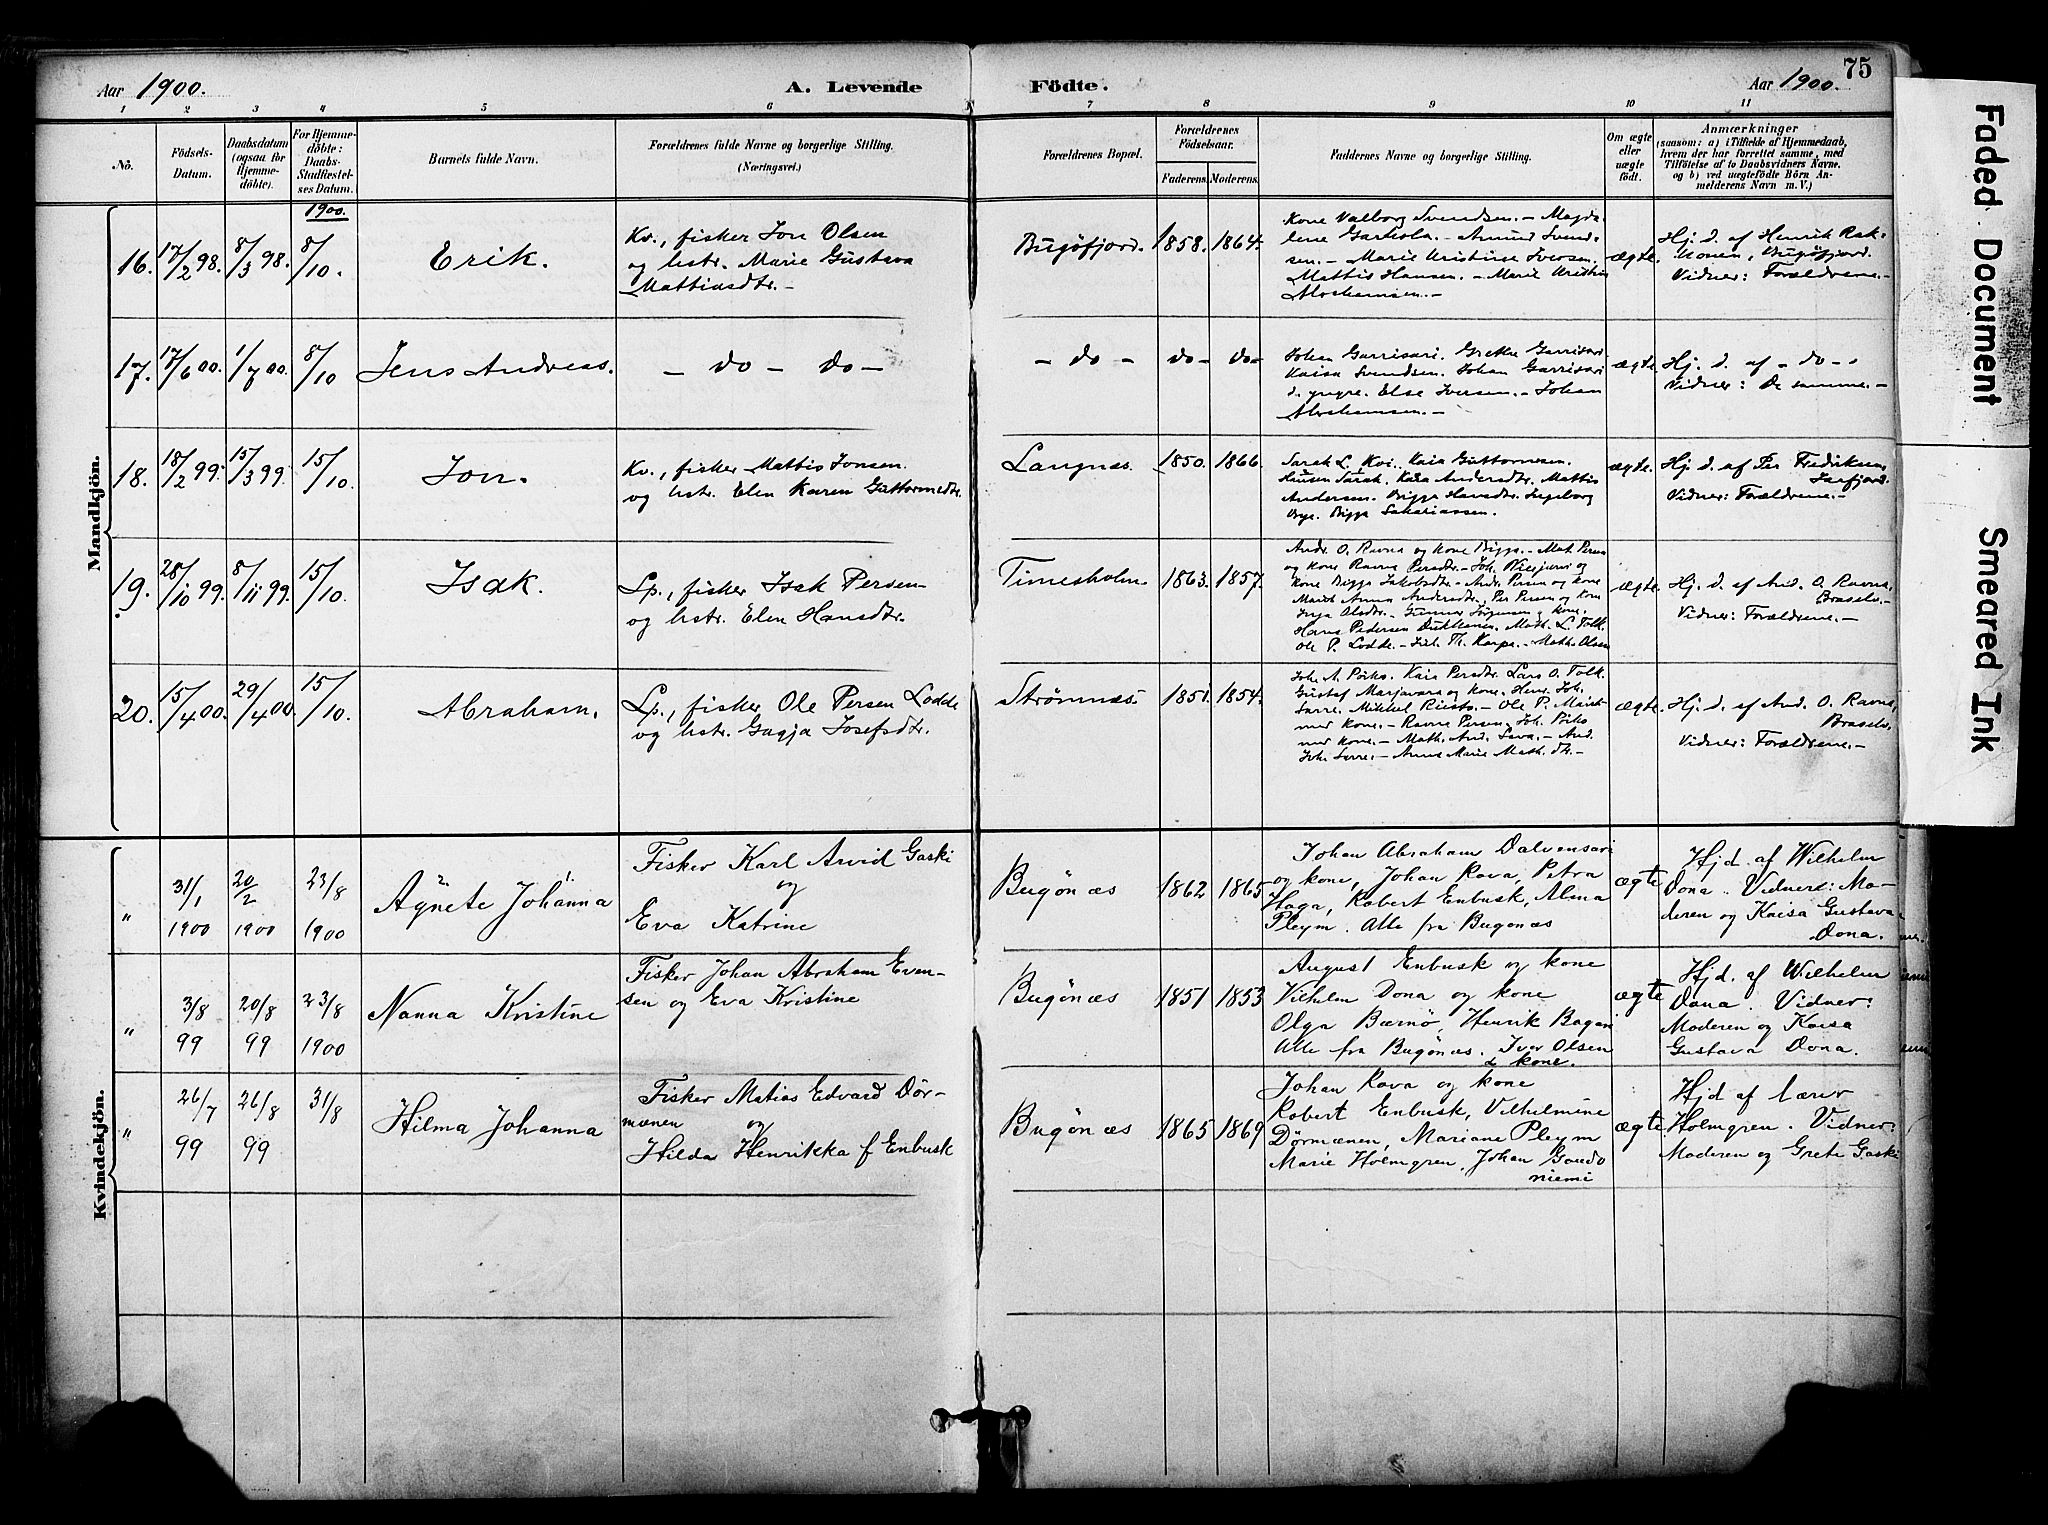 Aar 1900.
A. Levende Födte.
Aar 1900.
75
1 2 3 4 5 6 7 8 9 10 11
No.
Födsels-Datum.
Daabsdatum (ogsaa for Hjemme-döbte).
For Hjemme-döbte: Daabs-Stadfæstel-ses Datum.
Barnets fulde Navn.
Forældrenes fulde Navne og borgerlige Stilling. (Næringsvei.)
Forældrenes Bopæl.
Forældrenes Födselsaar.
Faderens. Moderens.
Faddernes Navne og borgerlige Stilling.
Om ægte eller uægte födt.
Anmærkninger
(saasom: a) i Tilfælde af Hjemmedaab, hvem der har forrettet samme, med Tilföielse af to Daabsvidners Navne. og b) ved uægtefödte Börn An-melderens Navn m. V.)
Mandkjön.
1900.
16. 17/2 98. 8/3 98. 8/10. Erik.
Kv., fisker Jon Olsen
og hstr. Marie Gustava
Mattiasdtr.-
Bugöfjord. 1858. 1864.
Kone Valborg Svendsen.- Magda-
lene Garhola.- Amund Svend-
sen.- Marie Kristine Iversen.
Mattis Hansen.- Marie Kristine
Abrahamsen.-
ægte.
Hj. d. af Henrik Rak-
konen, Bugöfjord.
Vidner: Forældrene.-
17. 17/6 00. 1/7 00. 8/10 Jens Andreas.
- do - do -
- do - do - do -
Johan Garrisari. Grethe Garrisari
Kaisa Svendsen. Johan Garrisari
d. yngre. Else Iversen.- Johan
Abrahamsen.-
ægte.
Hj. d. af - do -
Vidner: De samme.-
18. 18/2 99. 15/3 99. 15/10. Jon.
Kv., fisker Mattis Jonsen
og hstr. Elen Karen Guttormsdtr.
Langnæs. 1850. 1866.
Sarah L. Kaia Guttormsen.
Sarah. Kaia Andersdtr. Mattis
Andersen. Bigga Hansdtr. Ingeborg
Bigga Sakariassen.
ægte.
Hj. d. af Per Fredriksen,
Jarfjord.
Vidner: Forældrene.-
19. 28/10 99. 8/11 99. 15/10. Isak.
Lp., fisker Isak Persen
og hstr. Elen Hansdtr.
Timesholm. 1863. 1857.
Andr. O. Ravna og kone Bigga.- Mat. Persen
og kone Ravna Persdtr.- Joh. og
kone Bigga Jakobsdtr.- Andr. Persen og kone
Marit Anna Andersdtr., Per Persen og kone
Inga Olsdtr.- Gunnar Jörgensen og kone.
Hans Pedersen Math. L. Tolk.
Ole P. Lodde.- Th. Karpe.- Math. Olsen
ægte.
Hj. d. af And. O. Ravna,
Brasselv.-
Vidner: Forældrene.-
20. 15/4 00. 29/4 00. 15/10. Abraham.
Lp., fisker Ole Persen Lodde
og hstr. Gagja Josefsdtr.
Strömnæs. 1851. 1854.
Joh. A. Pörks. Kaia Persdtr. Lars O. Tolk.
Gustaf Marjavara og kone. Henr. Joh.
Sarre. Mikkel Riesto.- Ole P.
med kone.- Ravna Persen. Joh.
med kone.- Math. And. Sava.- And.
Joh. Sarre.- Anna Marie Math. dtr.-
ægte.
Hj. d. af And. O. Ravna,
Brasselv.
Vidner: Forældrene.-
Kvindekjön.
" 31/1 1900 20/2 1900 23/8 1900 Agnete Johanna
Fisker Karl Arvid Gaski
og
Eva Katrine
Bugönæs 1862 1865
Johan Abraham Dalvensari
og kone, Johan Rova, Petra
Haga, Robert Enbusk, Alma
Pleym. Alle fra Bugönæs
ægte
Hjd. af Wilhelm
Dona. Vidnere: Mo-
deren og Kaisa Gustava
Dona.
" 3/8 99 20/8 99 23/8 1900 Nanna Kristine
Fisker Johan Abraham Even-
sen og Eva Kristine
Bugönæs 1851 1853
August Enbusk og kone
Vilhelm Dona og kone
Olga Bærnö, Henrik Bagari
Alle fra Bugönæs. Iver Olsen
& kone.
ægte
Hjd. af Wilhelm
Dona. Vidner:
Moderen og Kaisa
Gustava Dona.
" 26/7 99 26/8 99 31/8 Hilma Johanna
Fisker Matias Edvard Dör-
mænen og
Hilda Henrikka f Enbusk
Bugönæs 1865 1869
Johan Rova og kone
Robert Enbusk, Vilhelmine
Dörmænen, Mariane Pleym
Marie Holmgren, Johan Gaudo
niemi
ægte
Hjd af lærer
Holmgren. Vidner:
Moderen og Grete Gaski
Faded Document
Smeared Ink